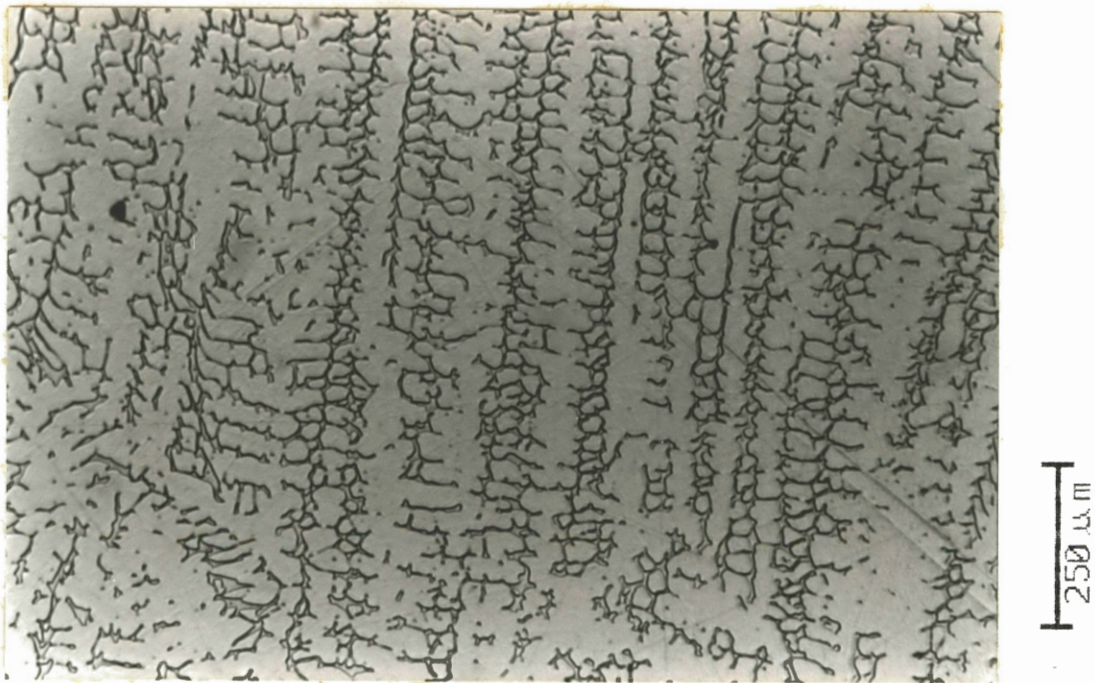 250 µm